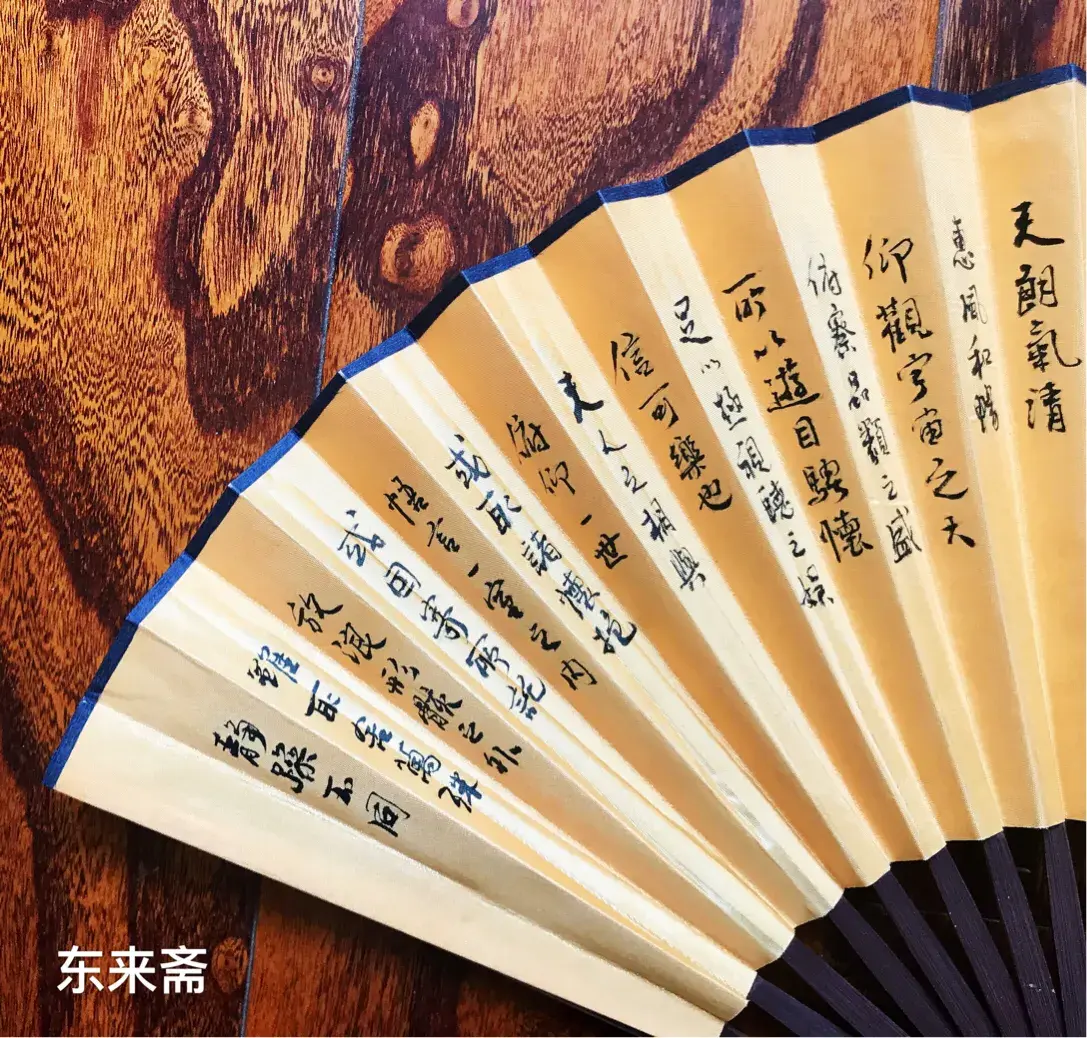 天朗氣清
惠風和暢
仰觀宇宙之大
俯察品類之盛
所以遊目騁懷
足以極視聽之娛
信可樂也
夫人之相與
俯仰一世
或取諸懷抱
悟言一室之内
或因寄所託
放浪形骸之外
雖取舍萬殊
靜躁不同
东来斋